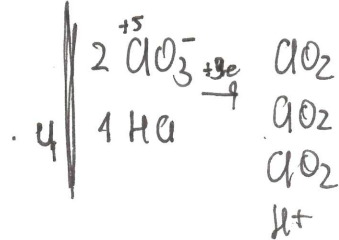 +5
2 ClO3⁻ +3e → ClO2
. 4 1 HCl ClO2
ClO2
H+